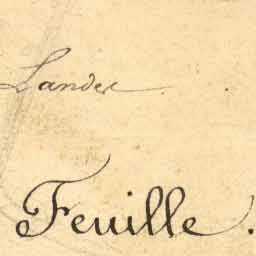 Landes
Feuille.